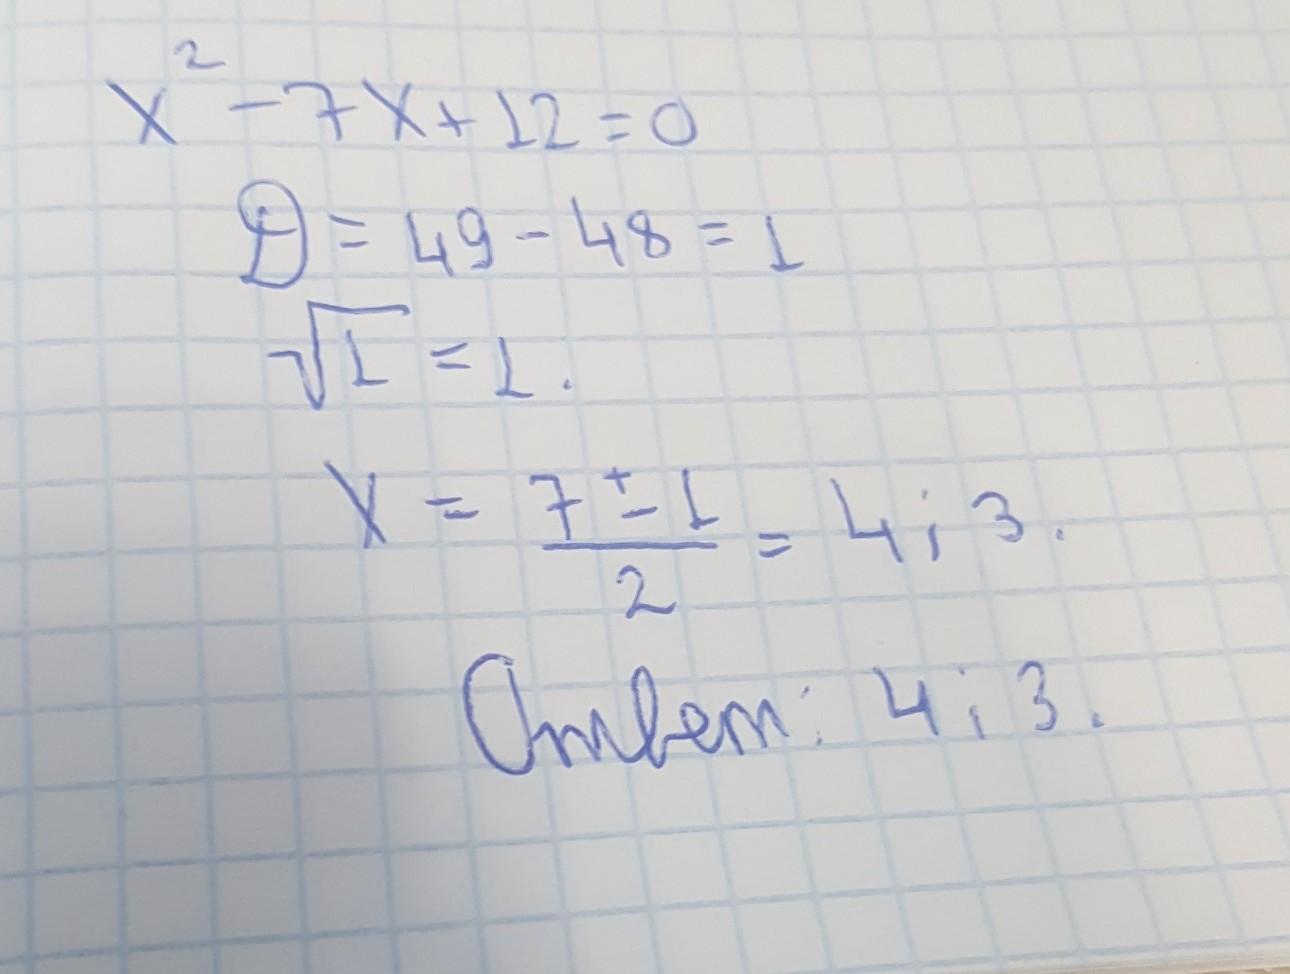 x² - 7x + 12 = 0
D = 49 - 48 = 1
√1 = 1.
x = (7 ± 1)/2 = 4; 3.
Ответ: 4; 3.